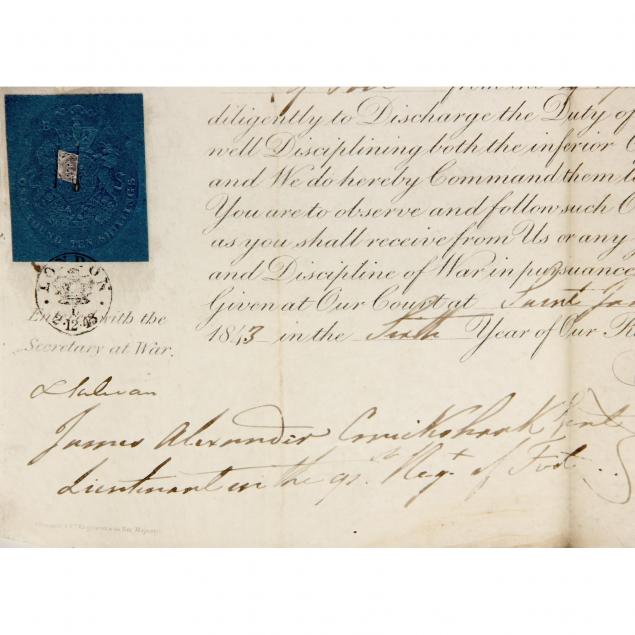 from the
diligently to Discharge the Duty of
well Disciplining both the inferior O
and We do hereby Command them t
You are to observe and follow such O
as you shall receive from Us or any
and Discipline of War in pursuance
Given at Our Court at Saint Jam
1843 in the Sixth Year of Our R
TEN SHILLINGS
LONDON
2·12·43
with the
Secretary at War.
James Alexander Cruickshank Gent
Lieutenant in the Regt of Foot